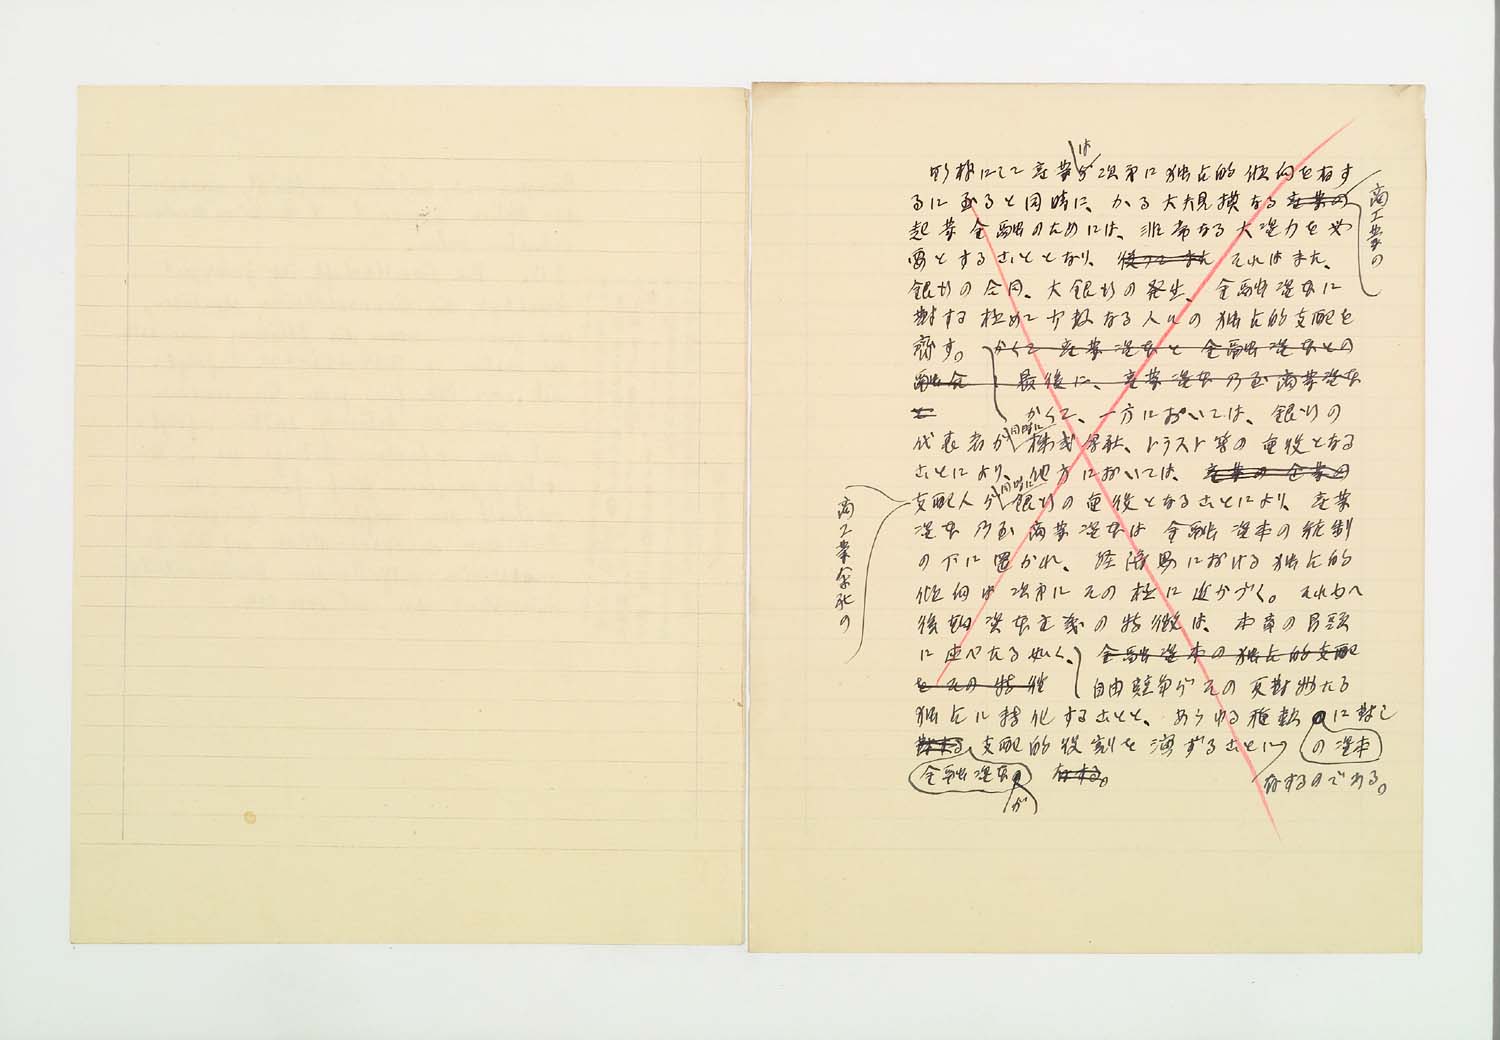 は
斯様にして産業が次第に独占的傾向を有す
るに至ると同時に、かゝる大規模なる産業の
商工業の
起業金融のためには、非常なる大資力を必
要とすることとなり、従つてまた それはまた、
銀行の合同、大銀行の発生、金融資本に
對する極めて少数なる人々の独占的支配を
齎す。かくて産業資本と金融資本との
融合 最後に、産業資本乃至商業資本
と かくて、一方においては、銀行の
同時に
代表者が株式会社、トラスト等の重役となる
ことにより、他方においては、産業の企業の
商工業会社の
同時に
支配人が銀行の重役となることにより、産業
資本乃至商業資本は金融資本の統制
の下に置かれ、経済界における独占的
傾向は次第にその極に近かづく。それ故へ
後期資本主義の特徴は、本章の冒頭
に述べたる如く、金融資本の独占的支配
をその特徴 自由競争がその反對物たる
独占に轉化することと、あらゆる種類に對し
の資本
對する支配的役割を演ずることに
金融資本 が 存する。 存するのである。